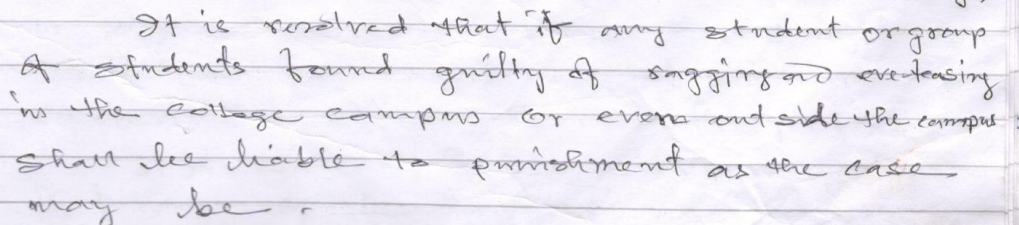 It is resolved that if any student or group
of students found guilty of ragging and eve-teasing
in the college campus or even outside the campus
shall be liable to punishment as the case
may be.